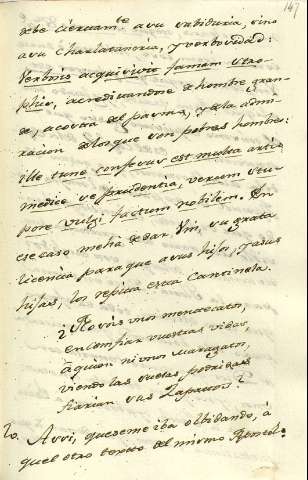 147
debe ciertam.te a su sabiduria, sino
a su Charlataneria, y verbosidad:
Verbisis acquivivit famam Stro-
phis, acreditandose de hombre gran-
de, a costa del pasmo, y de la admi-
racion de los que son pobres hombres:
ille tunc confessus est multa artis
medicæ se prudentia, verum stu-
pore vulgi factum nobilem. En
ese caso me há de dar Vm, su grata
licencia para que a sus hijos, y a sus
hijas, les repita esta Cancioneta.
¿No sois unos mentecatos,
en confiar vuestras vidas
à quien ni unos maragatos,
viendo las suelas podridas
fiarian sus Zapatos?
20. Assi, que se me iba olbidando, à
quel otro texto del mismo